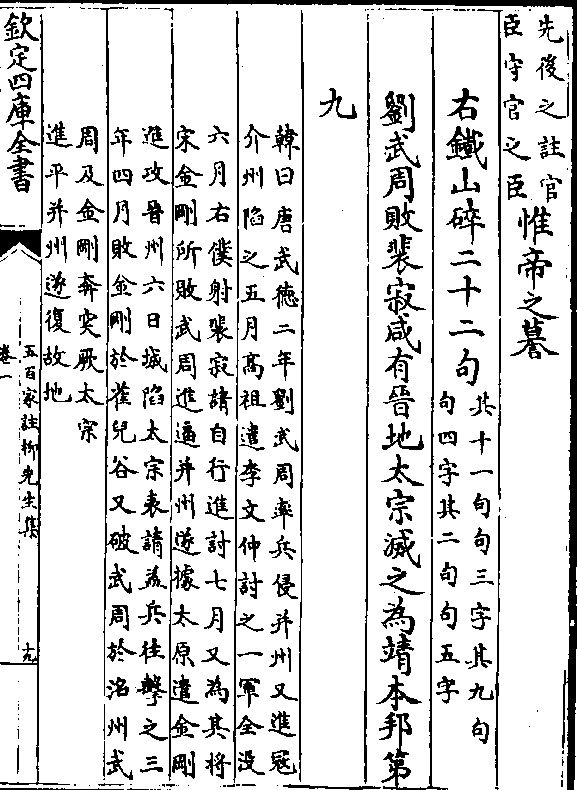 先後之註官
臣守官之臣
惟帝之謩
右鐵山碎二十二句
其十一句句三字其九句
句四字其二句句五字
劉武周敗裴寂咸有晉地太宗滅之為靖本邦第
九
韓曰唐武德二年劉武周率兵侵并州又進冦
介州陷之五月高祖遣李文仲討之一軍全没
六月右僕射裴寂請自行進討七月又為其將
宋金剛所敗武周進逼并州遂據太原遣金剛
進攻晉州六日城陷太宗表請益兵往擊之三
年四月敗金剛於雀兒谷又破武周於洺州武
周及金剛奔突厥太宗
進平并州遂復故地
欽定四庫全書
五百家註柳先生集
卷一
九